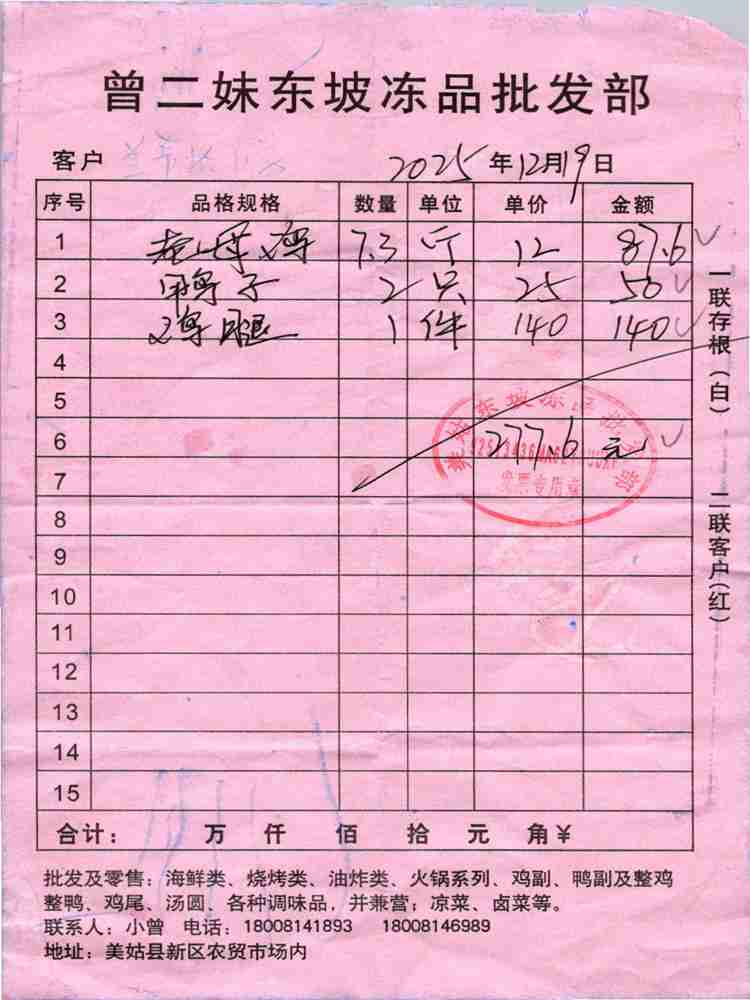 曾二妹东坡冻品批发部
客户 2025年12月19日
序号 品格规格 数量 单位 单价 金额
1 老母鸡 7.3 斤 12 87.6
2 鸭子 2 只 25 50
3 鸡腿 1 件 140 140
4
5
6 277.6元
7
8
9
10
11
12
13
14
15
合计： 万 仟 佰 拾 元 角¥
批发及零售：海鲜类、烧烤类、油炸类、火锅系列、鸡副、鸭副及整鸡
整鸭、鸡尾、汤圆、各种调味品，并兼营：凉菜、卤菜等。
联系人：小曾 电话：18008141893 18008146989
地址：美姑县新区农贸市场内
一联存根（白） 二联客户(红)
发票专用章